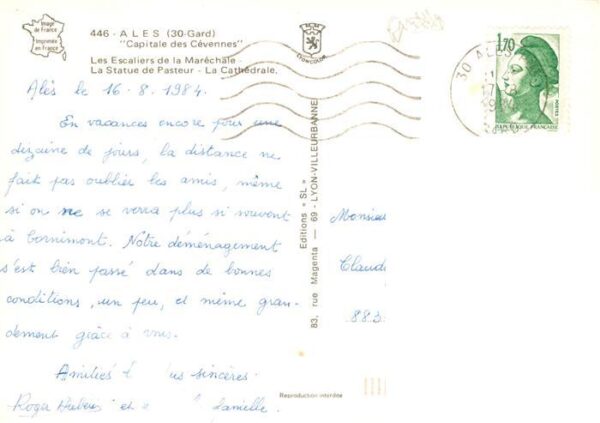 Image
de France
Imprimée
en France
446 - ALES (30-Gard)
"Capitale des Cévennes"
Les Escaliers de la Maréchale -
La Statue de Pasteur - La Cathédrale.
Alès le 16-8-1984.
En vacances encore pour une
dizaine de jours, la distance ne
fait pas oublier les amis, même
si on ne se verra plus si souvent
à Cornimont. Notre déménagement
s'est bien passé dans de bonnes
conditions, un peu, et même gran-
dement grâce à vous.
Amitiés sincères
Roger et Danielle.
Editions « SL »
83, rue Magenta — 69 - LYON-VILLEURBANNE
Reproduction interdite
Monsieur
Claude
883
30 ALES
1,70
REPUBLIQUE FRANÇAISE
POSTES